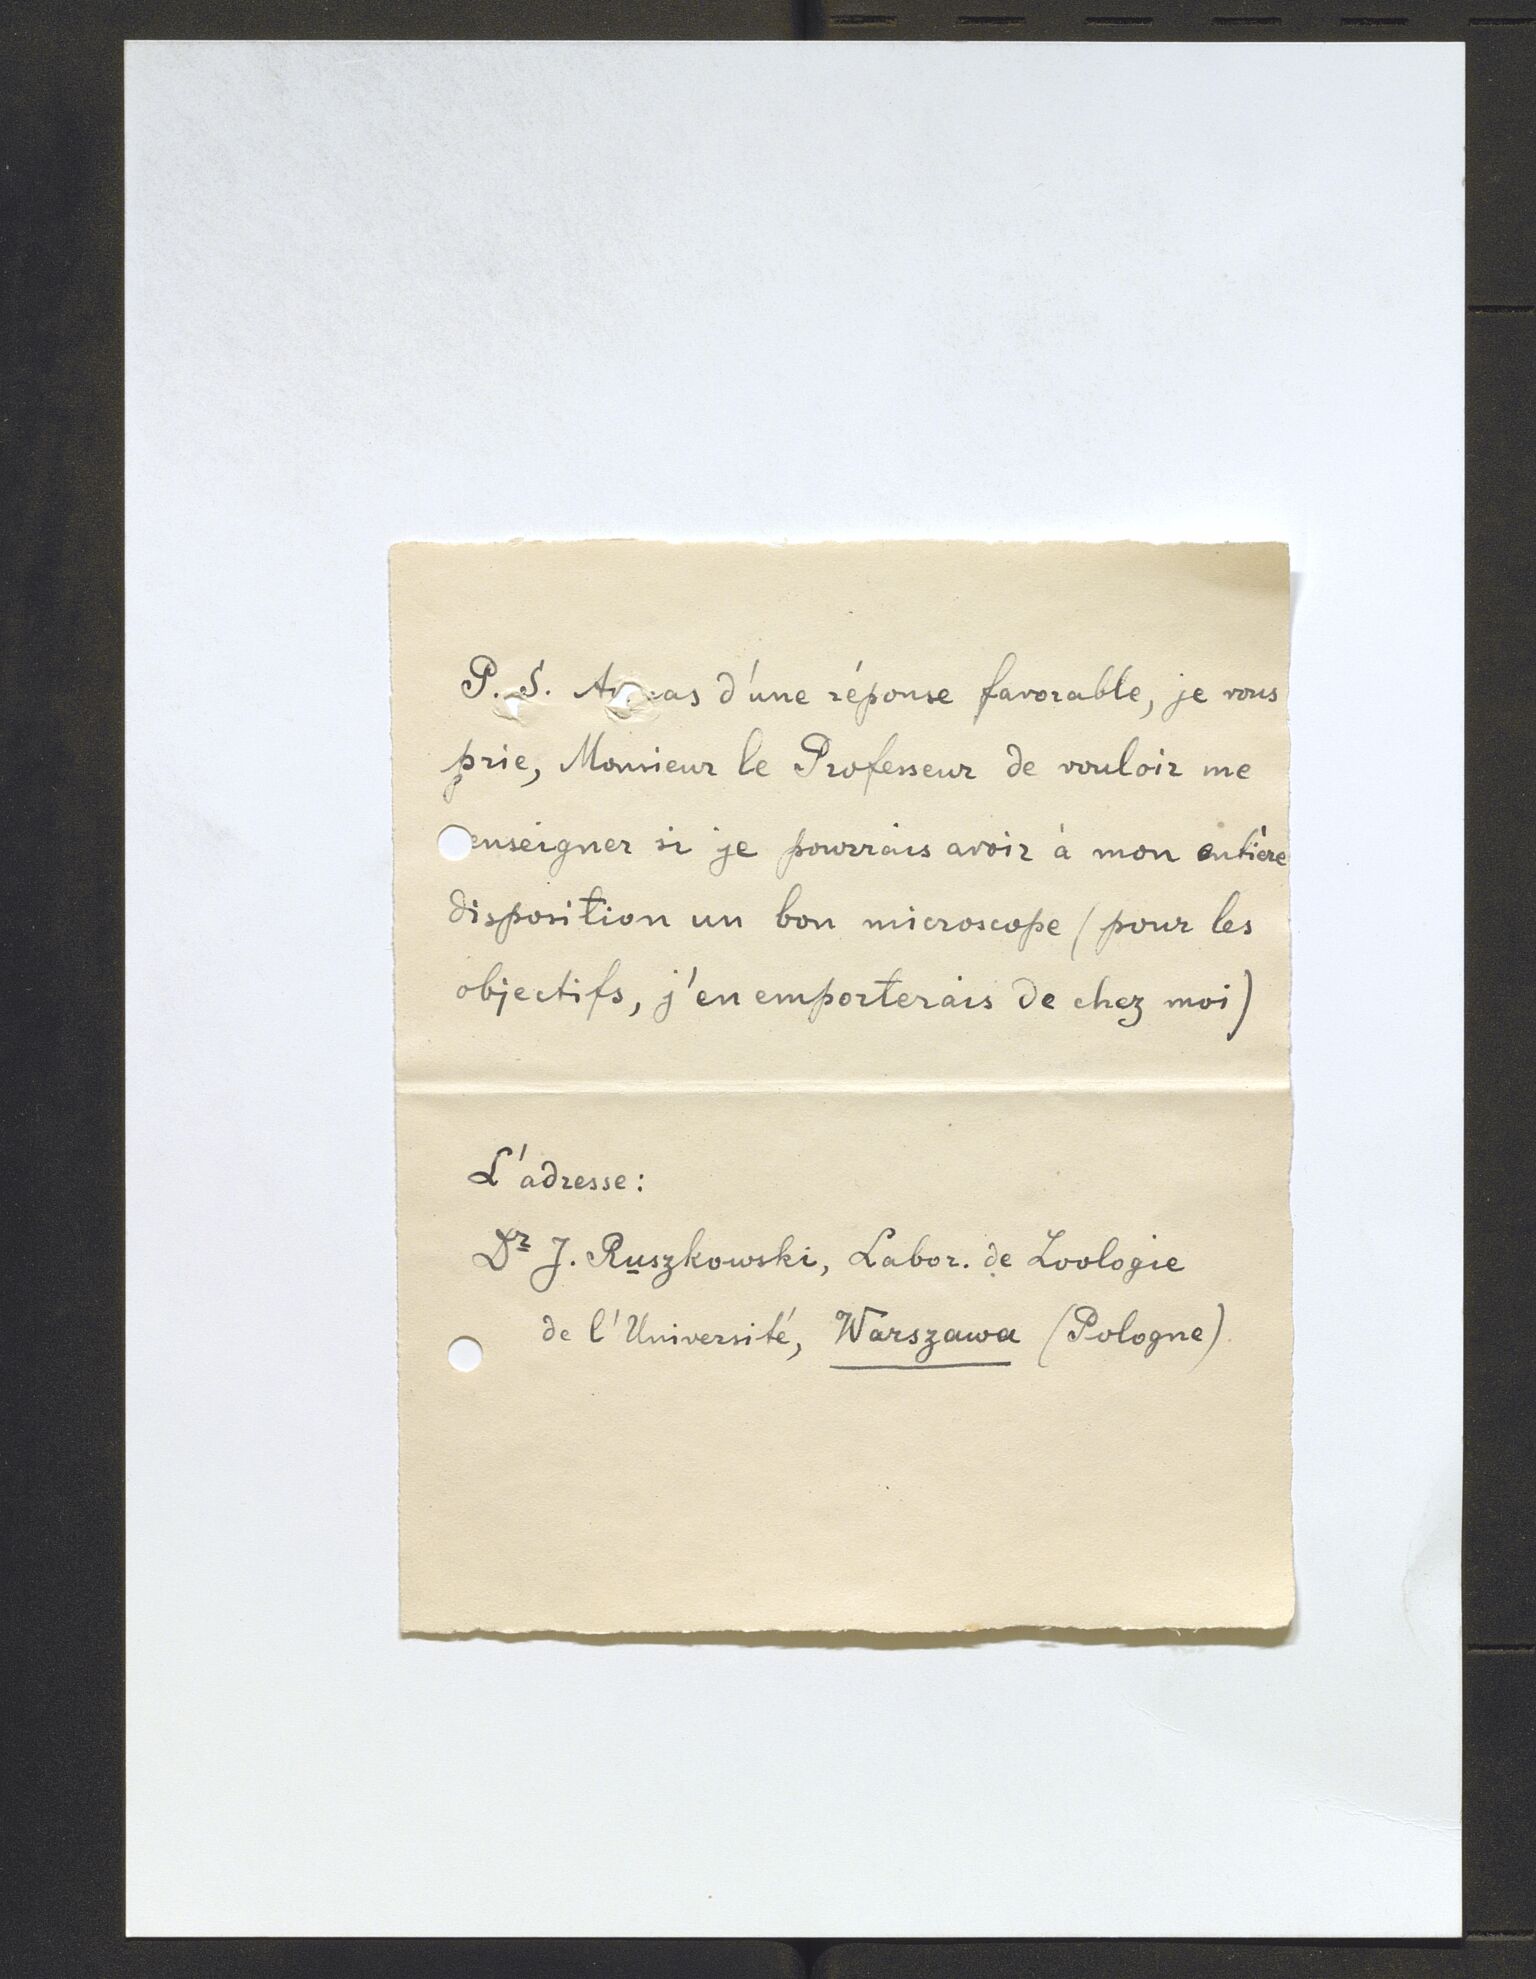 P. S. Au cas d'une réponse favorable, je vous
prie, Monsieur le Professeur de vouloir me
enseigner si je pourrais avoir à mon entière
disposition un bon microscope (pour les
objectifs, j'en emporterais de chez moi)
L'adresse:
Dr J. Ruszkowski, Labor. de Zoologie
de l'Université, Warszawa (Pologne)